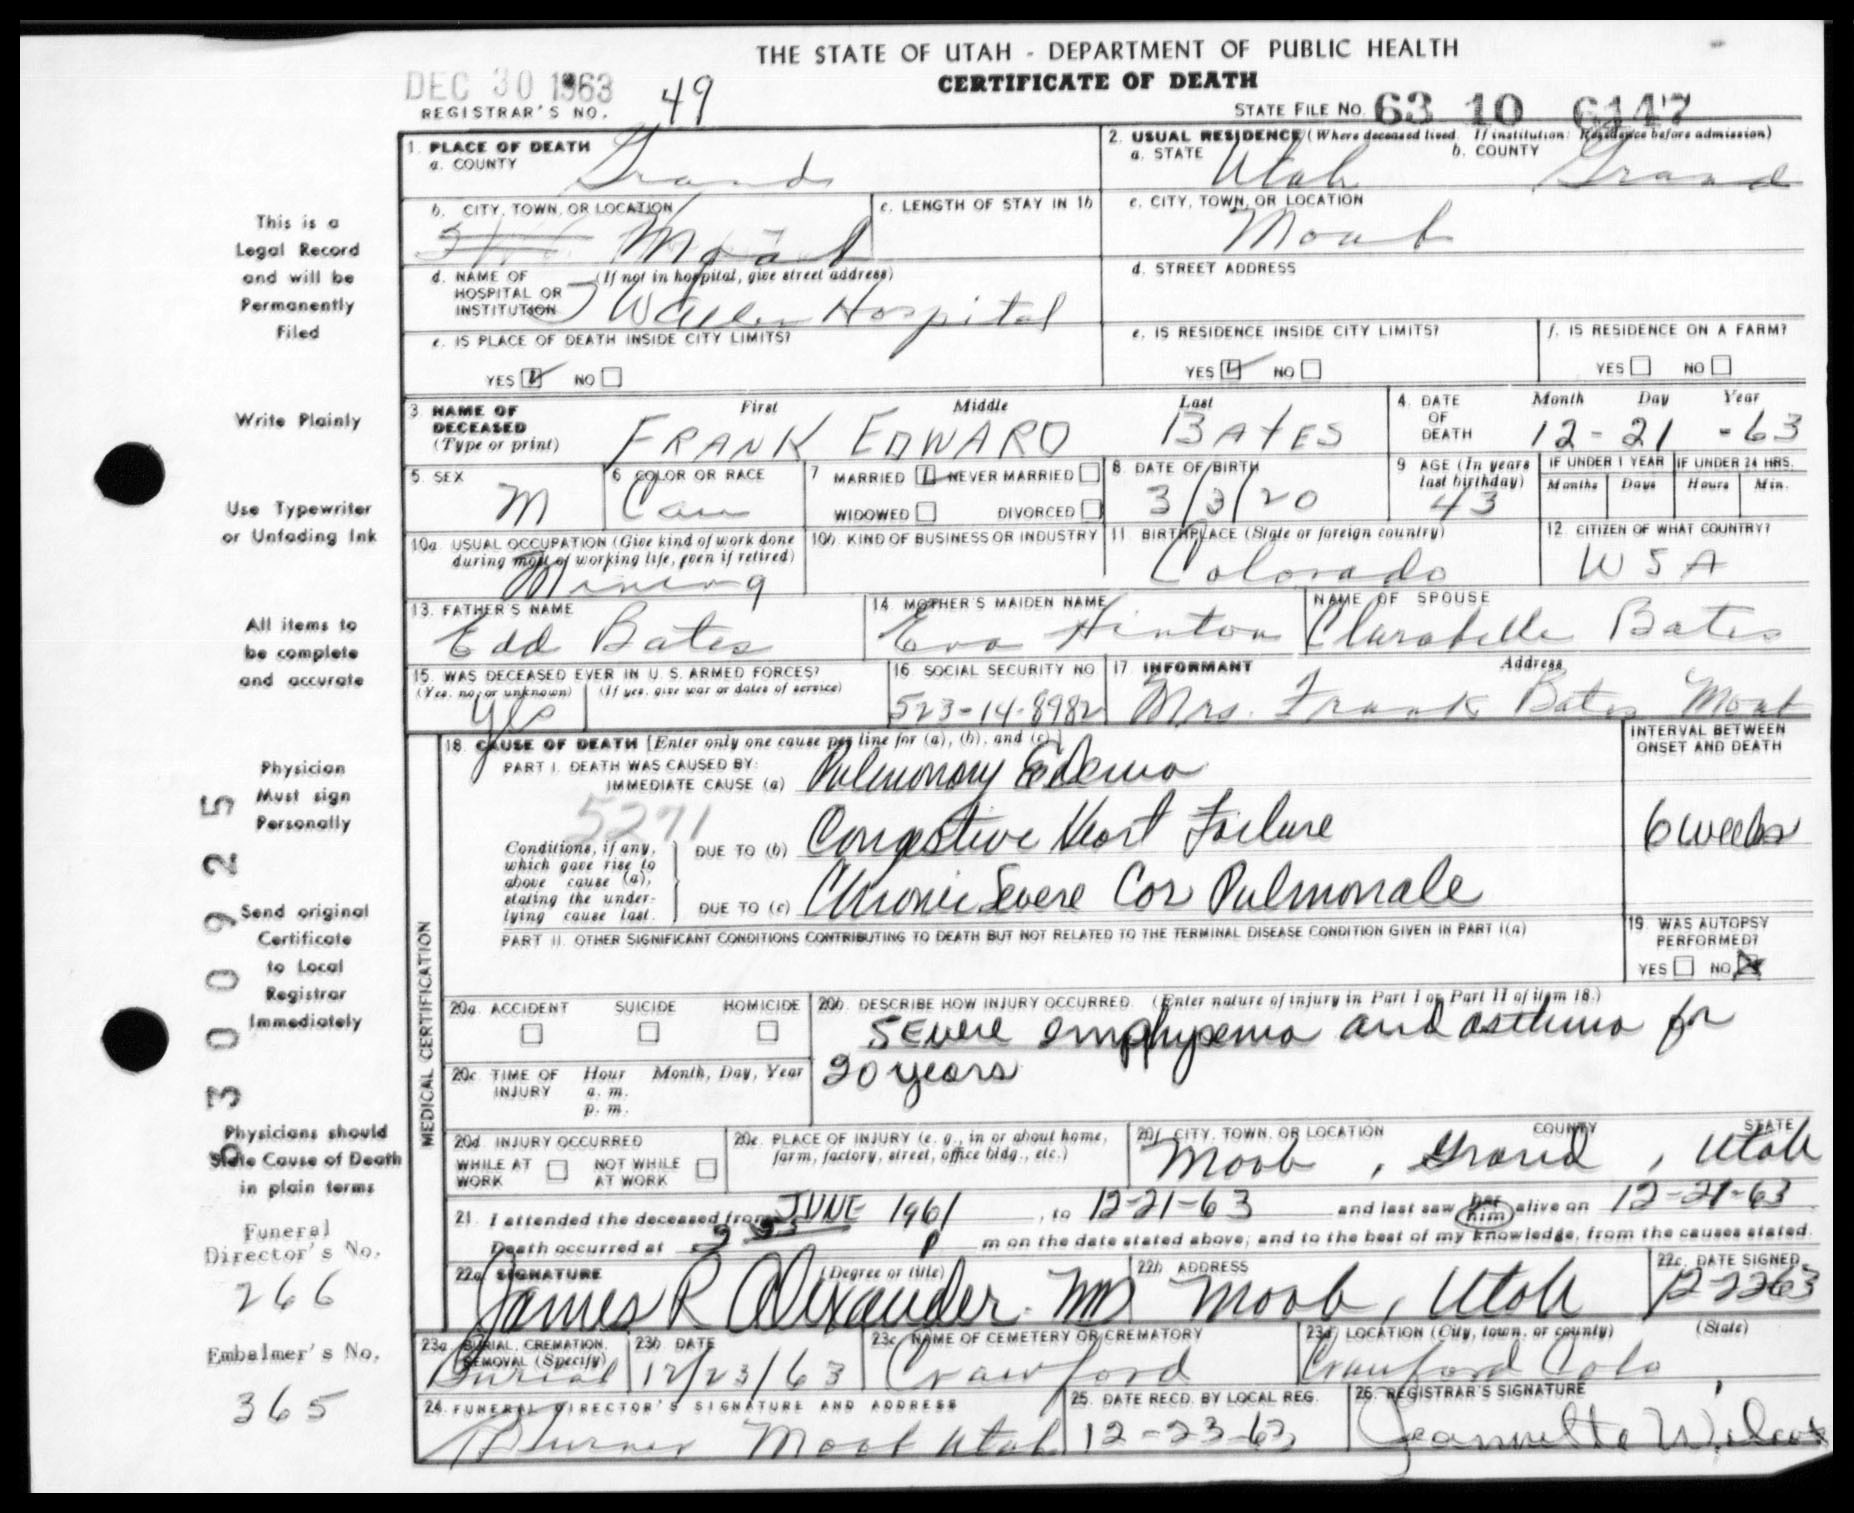 THE STATE OF UTAH - DEPARTMENT OF PUBLIC HEALTH
CERTIFICATE OF DEATH
DEC 30 1963
REGISTRAR'S NO. 49
STATE FILE NO. 63 10 6147
1. PLACE OF DEATH
a. COUNTY Grand
2. USUAL RESIDENCE (Where deceased lived. If institution: Residence before admission)
a. STATE Utah b. COUNTY Grand
b. CITY, TOWN, OR LOCATION Moab
c. LENGTH OF STAY IN 1b
c. CITY, TOWN, OR LOCATION Moab
d. NAME OF HOSPITAL OR INSTITUTION (If not in hospital, give street address) Hospital
d. STREET ADDRESS
e. IS PLACE OF DEATH INSIDE CITY LIMITS?
YES NO
e. IS RESIDENCE INSIDE CITY LIMITS?
YES NO
f. IS RESIDENCE ON A FARM?
YES NO
3. NAME OF DECEASED (Type or print)
First Middle Last
FRANK EDWARD BATES
4. DATE OF DEATH
Month Day Year
12-21-63
5. SEX M
6. COLOR OR RACE Cau
7. MARRIED NEVER MARRIED
WIDOWED DIVORCED
8. DATE OF BIRTH 3/3/20
9. AGE (In years last birthday) 43
IF UNDER 1 YEAR
Months Days
IF UNDER 24 HRS.
Hours Min.
10a. USUAL OCCUPATION (Give kind of work done during most of working life, even if retired) Mining
10b. KIND OF BUSINESS OR INDUSTRY
11. BIRTHPLACE (State or foreign country) Colorado
12. CITIZEN OF WHAT COUNTRY? USA
13. FATHER'S NAME Edd Bates
14. MOTHER'S MAIDEN NAME Eva Hinton
NAME OF SPOUSE Clarabelle Bates
15. WAS DECEASED EVER IN U. S. ARMED FORCES?
(Yes, no, or unknown) (If yes, give war or dates of service)
yes
16. SOCIAL SECURITY NO. 523-14-8982
17. INFORMANT Address
Mrs. Frank Bates Moab
MEDICAL CERTIFICATION
18. CAUSE OF DEATH [Enter only one cause per line for (a), (b), and (c).]
PART I. DEATH WAS CAUSED BY:
IMMEDIATE CAUSE (a) Pulmonary Edema
5271
Conditions, if any, which gave rise to above cause (a), stating the underlying cause last.
DUE TO (b) Congestive Heart Failure
DUE TO (c) Chronic Severe Cor Pulmonale
INTERVAL BETWEEN ONSET AND DEATH
6 weeks
PART II. OTHER SIGNIFICANT CONDITIONS CONTRIBUTING TO DEATH BUT NOT RELATED TO THE TERMINAL DISEASE CONDITION GIVEN IN PART I(a)
19. WAS AUTOPSY PERFORMED?
YES NO
20a. ACCIDENT SUICIDE HOMICIDE
20b. DESCRIBE HOW INJURY OCCURRED. (Enter nature of injury in Part I or Part II of item 18.)
Severe emphysema and asthma for
20 years
20c. TIME OF INJURY
Hour Month, Day, Year
a. m.
p. m.
20d. INJURY OCCURRED
WHILE AT WORK NOT WHILE AT WORK
20e. PLACE OF INJURY (e. g., in or about home, farm, factory, street, office bldg., etc.)
20f. CITY, TOWN, OR LOCATION COUNTY STATE
Moab, Grand, Utah
21. I attended the deceased from JUNE 1961, to 12-21-63 and last saw her him alive on 12-21-63
Death occurred at p m on the date stated above; and to the best of my knowledge, from the causes stated.
22a. SIGNATURE (Degree or title) James R Alexander MD
22b. ADDRESS Moab, Utah
22c. DATE SIGNED 12-22-63
23a. BURIAL, CREMATION, REMOVAL (Specify) Burial
23b. DATE 12/23/63
23c. NAME OF CEMETERY OR CREMATORY Crawford
23d. LOCATION (City, town, or county) (State) Crawford Colo
24. FUNERAL DIRECTOR'S SIGNATURE AND ADDRESS
Moab Utah
25. DATE RECD. BY LOCAL REG. 12-23-63
26. REGISTRAR'S SIGNATURE Jeannette Wilcox
This is a
Legal Record
and will be
Permanently
Filed
Write Plainly
Use Typewriter
or Unfading Ink
All items to
be complete
and accurate
Physician
Must sign
Personally
Send original
Certificate
to Local
Registrar
Immediately
Physicians should
State Cause of Death
in plain terms
Funeral
Director's No.
266
Embalmer's No.
365